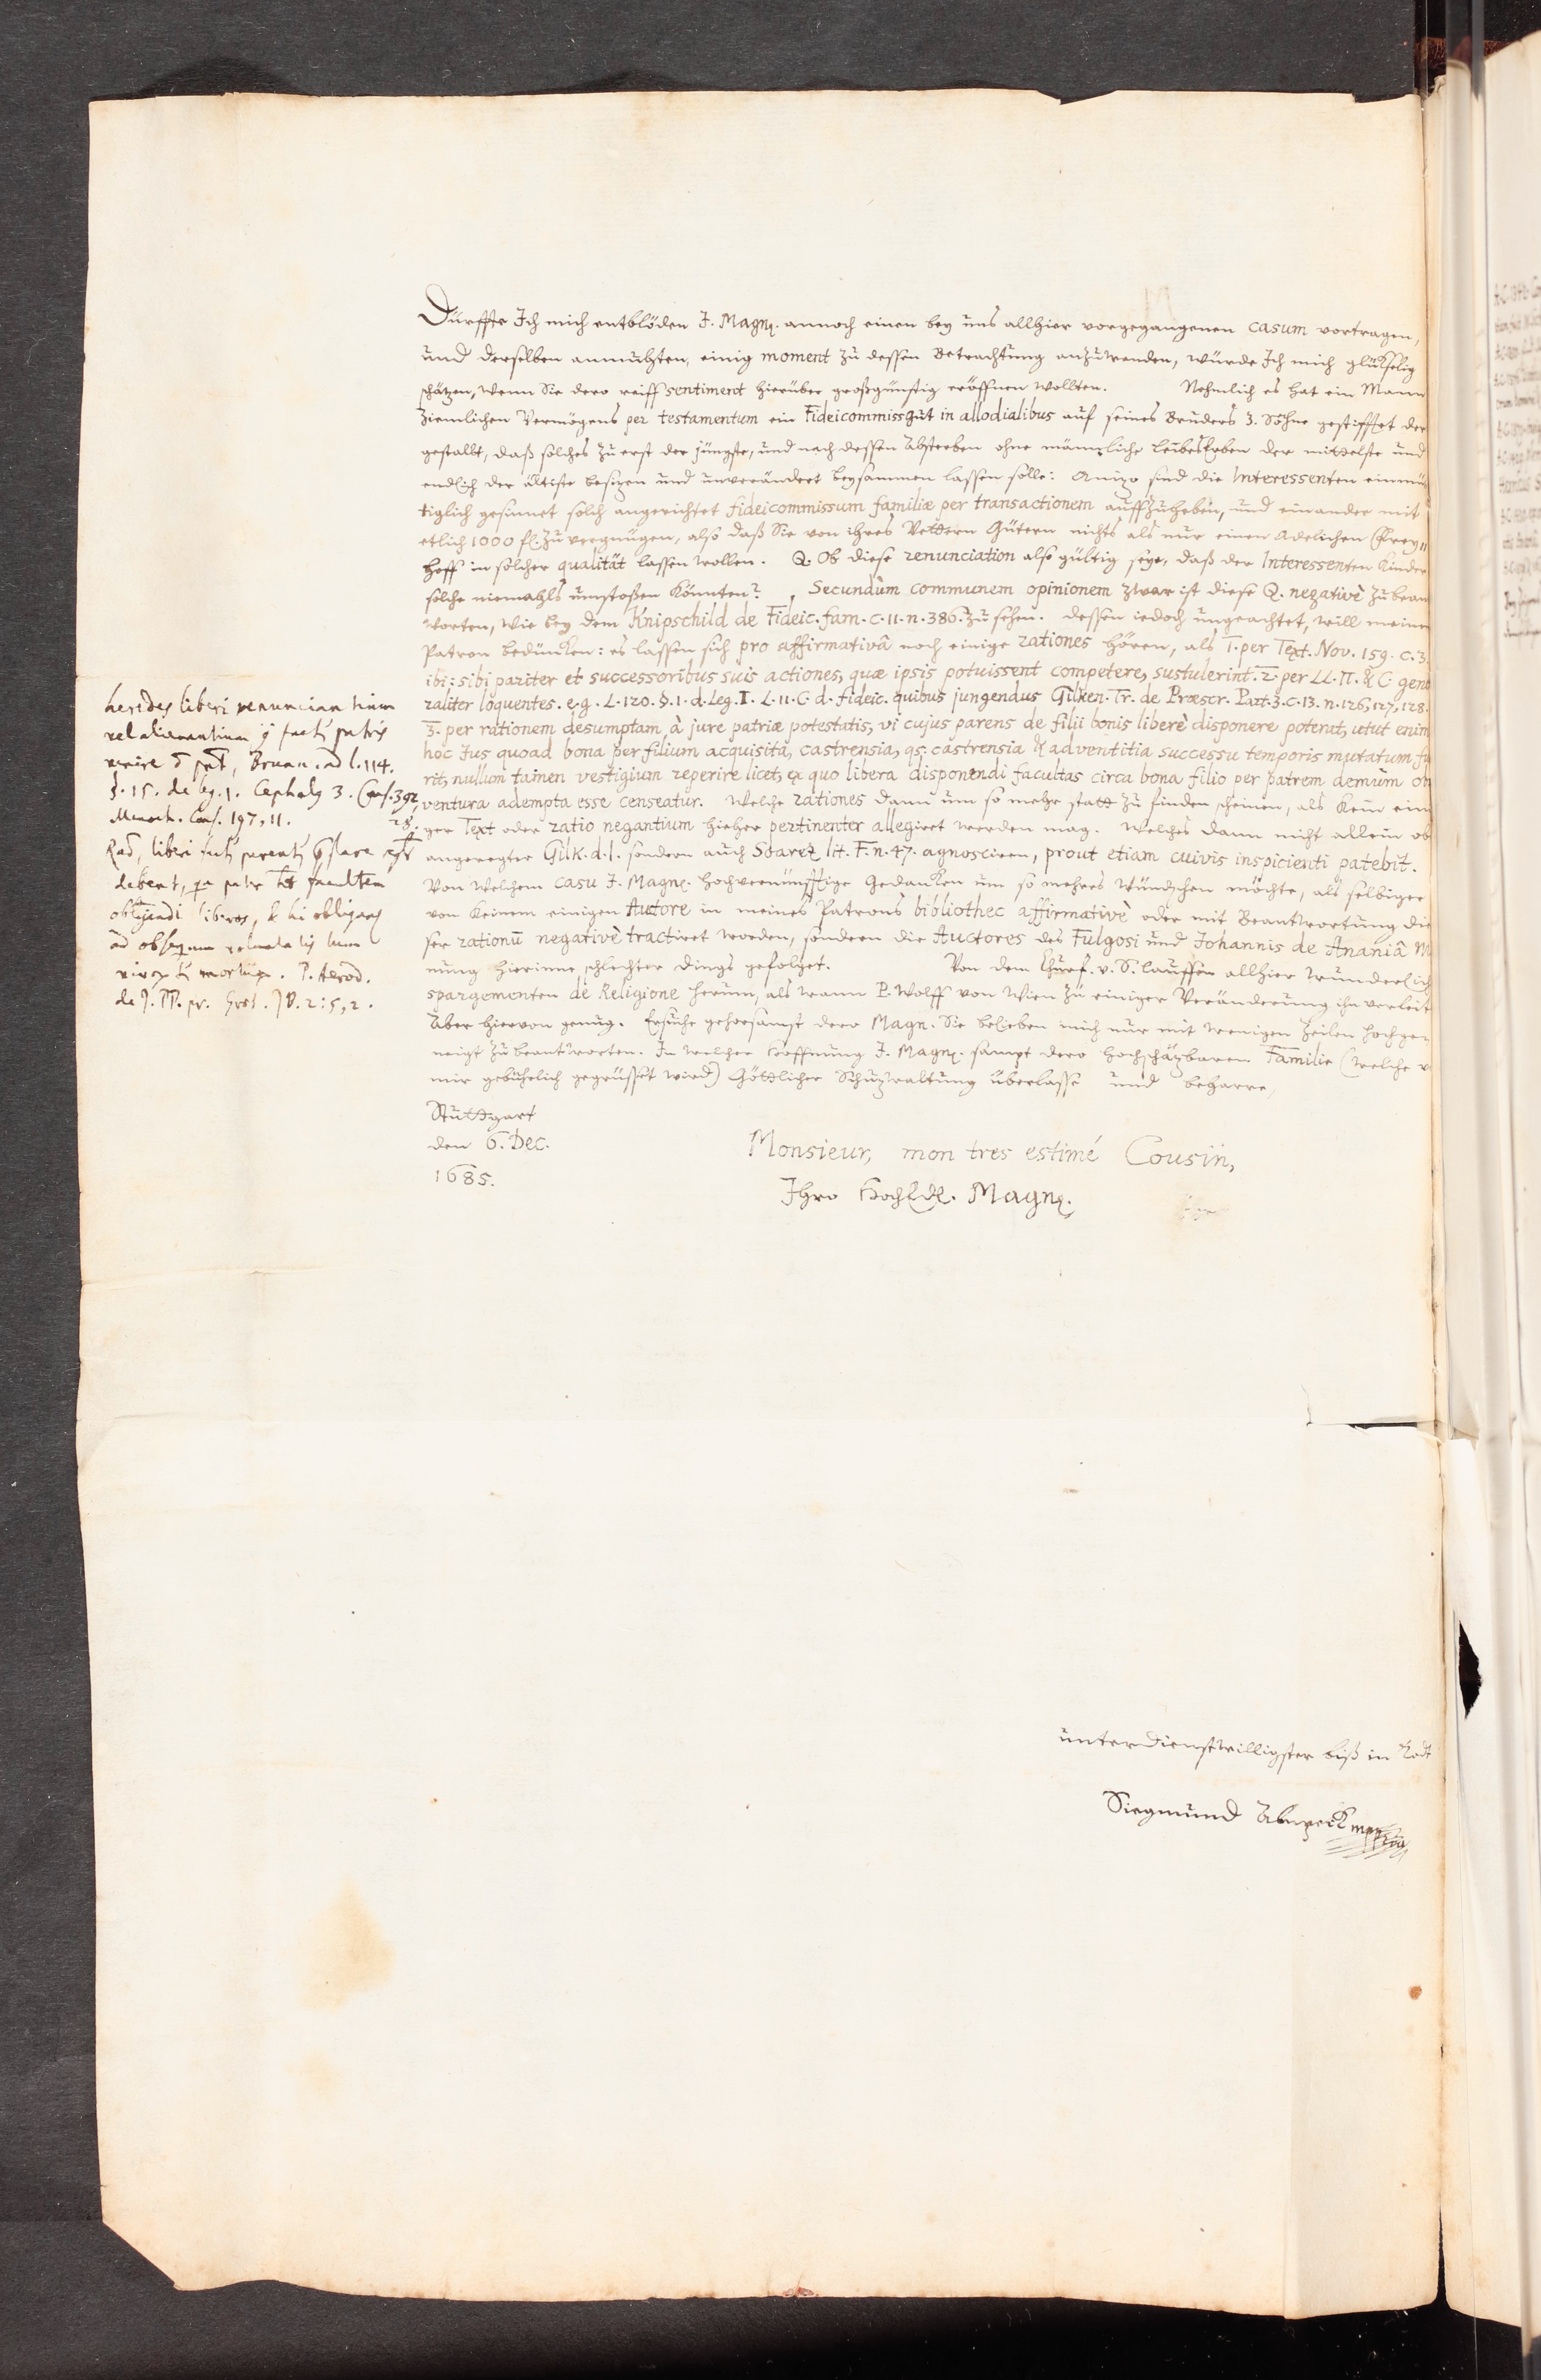 Dürffte Ich mich entblöden J. Magnf. annoch einen bey uns allhier vorgegangenen casum vortragen,
und derselben anmuhten, einig moment zu dessen Betrachtung anzuwenden, würde Ich mich glükselig
schätzen, wenn Sie dero reiff sentiment hierüber großgünstig eröffnen wollten. Nehmlich es hat ein Mann
Ziemlichen Vermögens per testamentum ein Fideicommissgut in allodialibus auf seines Bruders 3. Söhne gestifftet der
gestallt, daß solches zu erst der jüngste, und nach dessen Absterben ohne männliche LeibesErben der mittelste und
endlich der ältiste besizen und unverändert beysammen lassen solle: Anizo sind die Interessenten einmü
tiglich gesinnet solch angerichtet fideicommissum familiæ per transactionem auffzuheben, und einander mit
etlich 1000 fl. zu vergnügen, also daß Sie von ihres Vettern Gütern nichts als nur einen Adelichen Frey-
hoff in solcher qualität lassen wollen. Q. Ob diese renunciation also gültig seye, daß der Interessenten Kinder
solche niemahls umstoßen könnten? Secundùm communem opinionem zwar ist diese Q. negativè zu bean
worten, wie bey dem Knipschild de Fideic. fam. c. 11. n. 386. zu sehen. dessen iedoch ungeachtet, will meinem
Patron bedüncken: es lassen sich pro affirmativâ noch einige rationes hören, als 1. per Text. Nov. 159. c. 3.
ibi: sibi pariter et successoribus suis actiones, quæ ipsis potuissent competere, sustulerint. 2. per LL. Π. & C. gene
raliter loquentes. e.g. L. 120. §. 1. d. Leg. I. L. 11. C. d. fideic. quibus jungendus Gilken. Tr. de Præscr. Part. 3. c. 13. n. 126, 127, 128.
3. per rationem desumptam à jure patriæ potestatis, vi cujus parens de filii bonis liberè disponere poterat, utut enim
hoc Jus quoad bona per filium acquisita, castrensia, qs. castrensia & adventitia successu temporis mutatum fu
rit, nullum tamen vestigium reperire licet, ex quo libera disponendi facultas circa bona filio per patrem demùm ob
ventura adempta esse censeatur. Welche rationes dann um so mehr statt zu finden scheinen, als kein eini
ger Text oder ratio negantium hieher pertinenter allegiret werden mag. Welches dann nicht allein ob
angeregter Gilk. d. l. sondern auch Soarez lit. F. n. 47. agnosciren, prout etiam cuivis inspicienti patebit.
Von welchem casu J. Magnf. hochvernünfftige Gedancken um so mehres wündschen möchte, als selbiger
von keinem einigen Autore in meines Patrons bibliothec affirmativè oder mit Beantwortung die
ser rationū negativè tractiret worden, sondern die Auctores des Fulgosi und Johannis de Ananiâ M
nung hierinne schlechter dings gefolget. Von dem Churf. v. S. lauffen allhier wunderlich
spargementen de Religione herum, als wann P. Wolff von Wien zu einiger Veränderung ihn verleit
Aber hiervon genug. Ersuche gehorsamst dero Magn. Sie belieben mich nur mit wenigen Zeilen hochge-
neigt zu beantworten. In welcher Hoffnung J. Magnf. sampt dero hochschätzbaren Familie (welche v
mir gebührlich gegrüsset wird) Göttlicher Schuzwaltung überlasse und beharre,
Stuttgart
den 6. Dec.
1685.
Monsieur, mon tres estimé Cousin,
Ihro HochEdl. Magnf.
heredes liberi renunciantium
vel alienantium factū patris
venire pñt, Brunn. ad l. 114.
§. 15. de leg. 1. Cephalus 3. Cons. 392,
28.
Menoch. Cons. 197, 11.
Rañ, liberi factū parentū præstare
debent, qa pater het facultem
obligandi liberos, & hi obligantur
ad obsequium
de J. Π. pr. Grot. J. 2: 5, 2.
unterdienstwilligster biß in Todt
Siegmund mppria